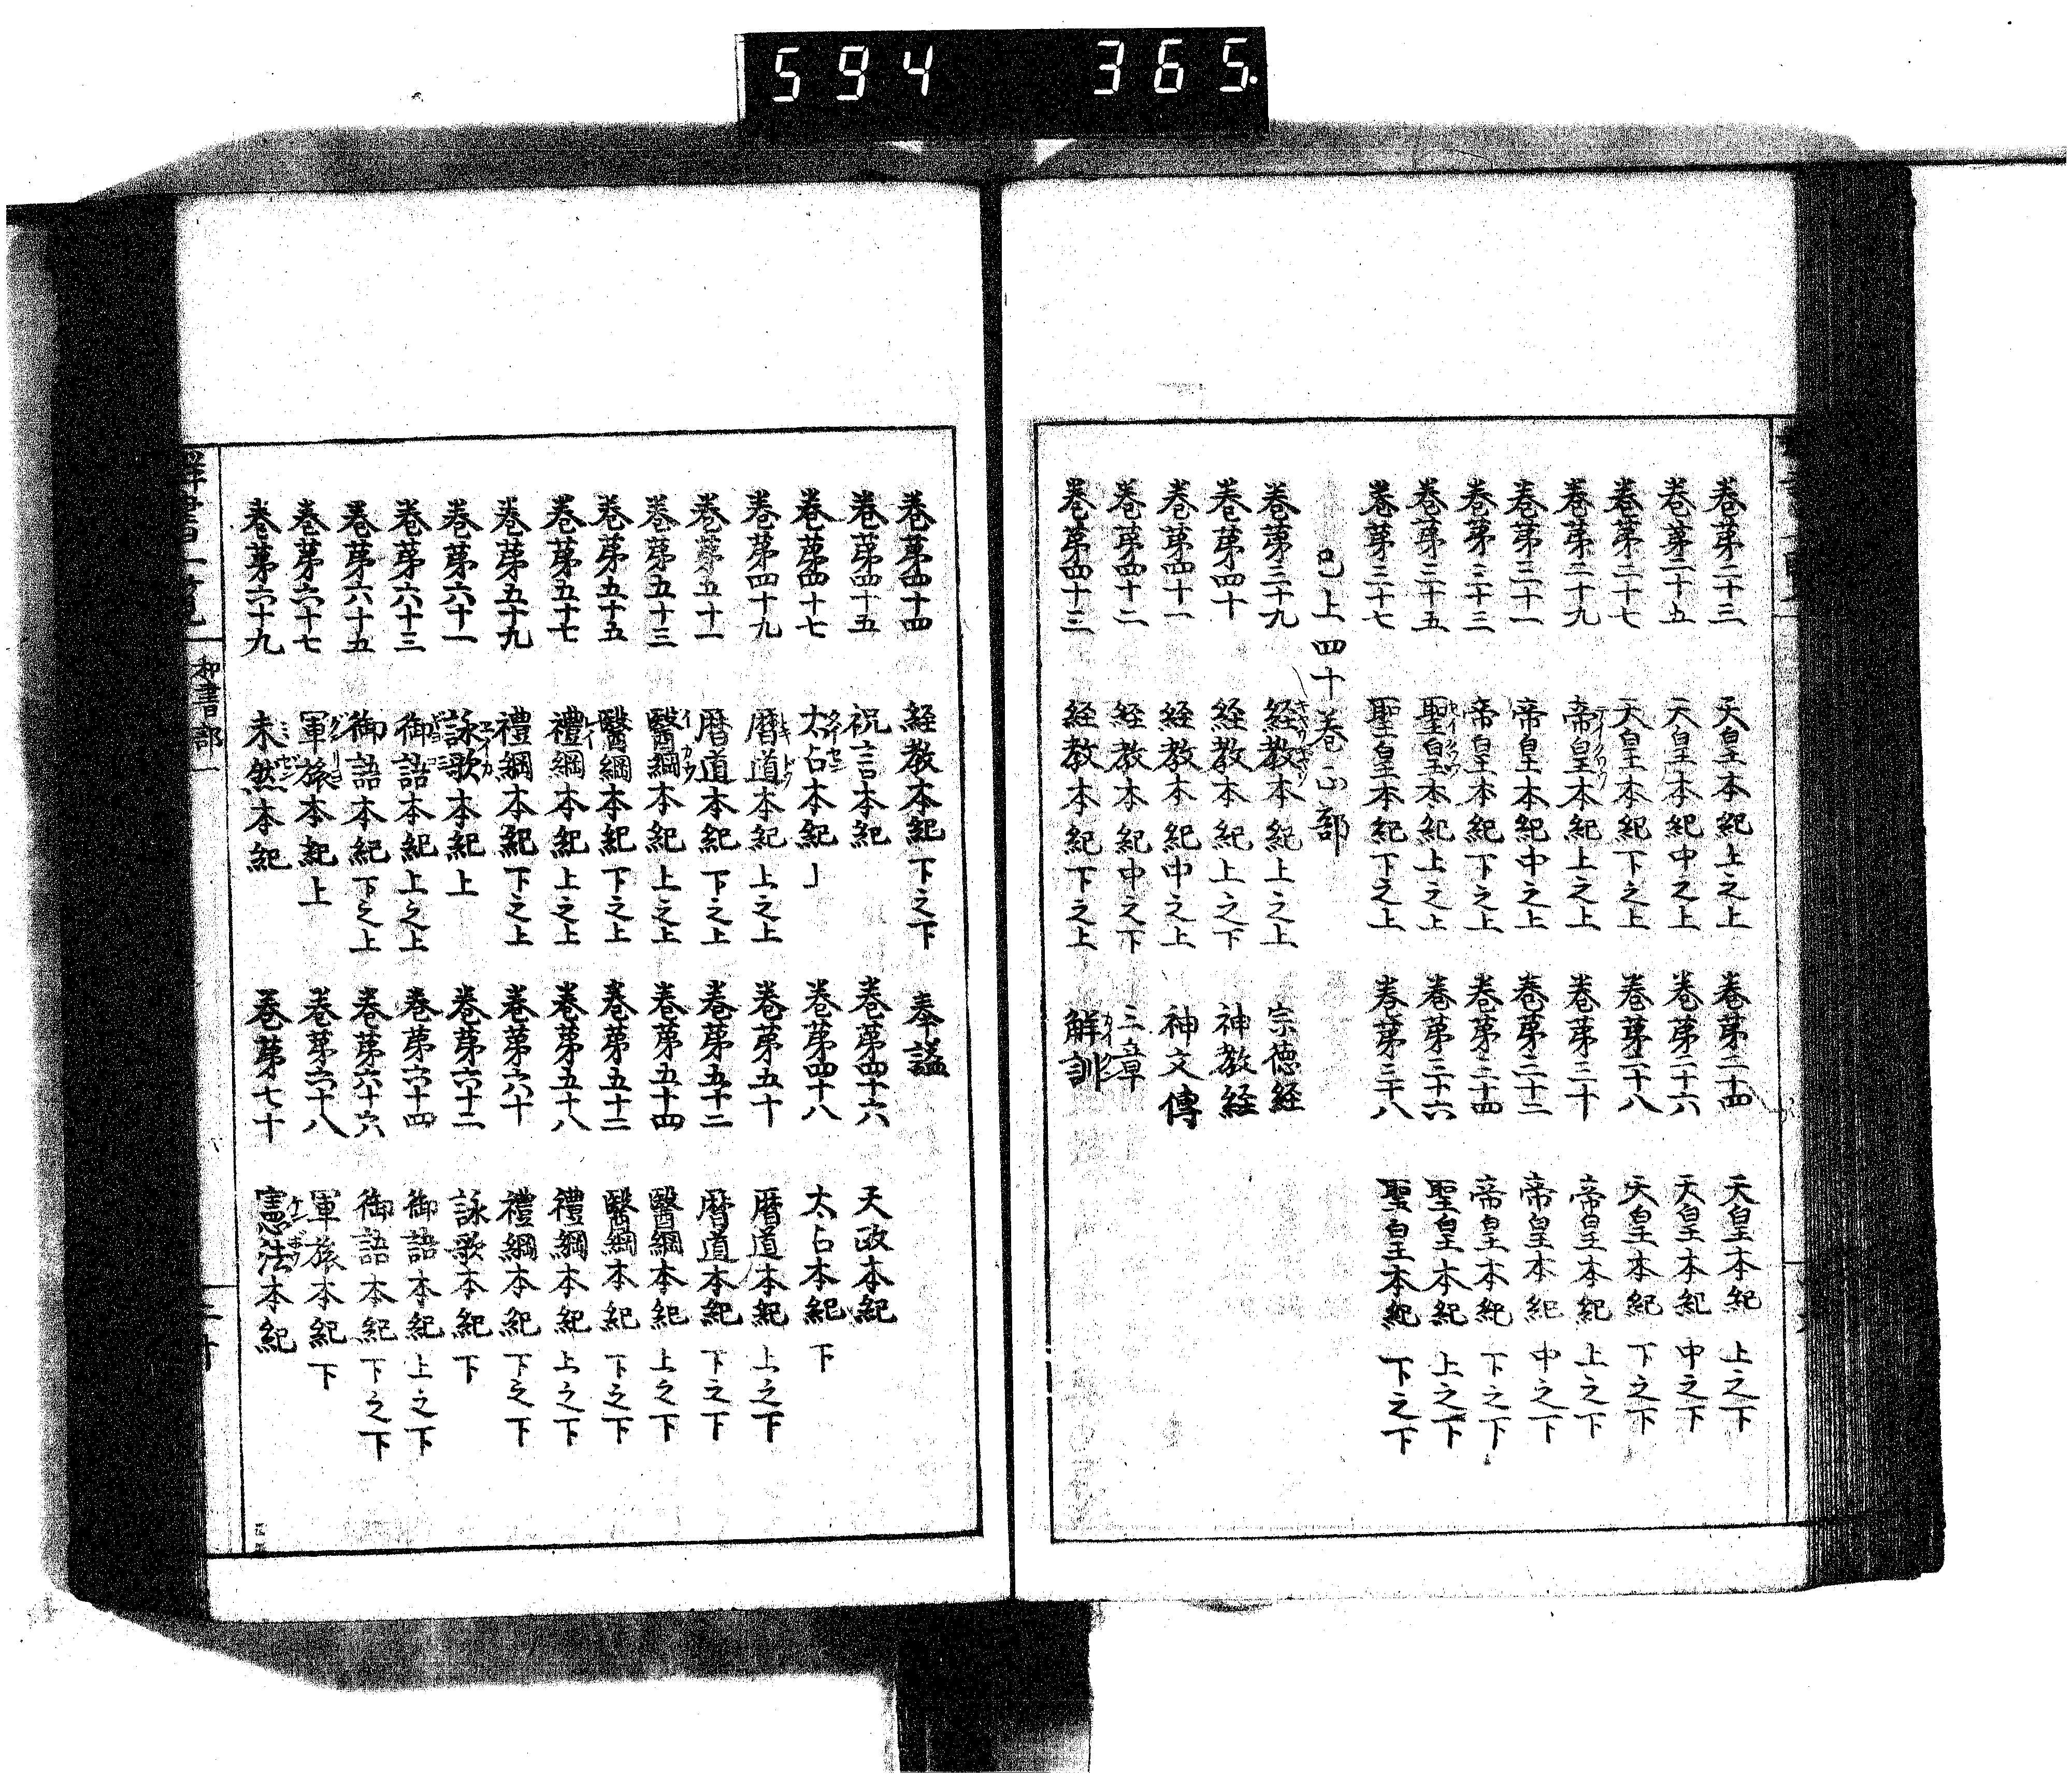 594 365
巻第二十三 天皇本紀上之上 巻第二十四 天皇本紀上之下
巻第二十五 天皇本紀中之上 巻第二十六 天皇本紀中之下
巻第二十七 天皇本紀下之上 巻第二十八 天皇本紀下之下
巻第二十九 帝皇本紀上之上 巻第三十 帝皇本紀上之下
巻第三十一 帝皇本紀中之上 巻第三十二 帝皇本紀中之下
巻第三十三 帝皇本紀下之上 巻第三十四 帝皇本紀下之下
巻第三十五 聖皇本紀上之上 巻第三十六 聖皇本紀上之下
巻第三十七 聖皇本紀下之上 巻第三十八 聖皇本紀下之下
已上四十巻正部
巻第三十九 経教本紀上之上 宗徳経
巻第四十 経教本紀上之下 神教経
巻第四十一 経教本紀中之上 神文傳
巻第四十二 経教本紀中之下 三章
巻第四十三 経教本紀下之上 解訓
巻第四十四 経教本紀下之下 奉謚
巻第四十五 祝言本紀 巻第四十六 天政本紀
巻第四十七 太占本紀上 巻第四十八 太占本紀下
巻第四十九 暦道本紀上之上 巻第五十 暦道本紀上之下
巻第五十一 暦道本紀下之上 巻第五十二 暦道本紀下之下
巻第五十三 醫綱本紀上之上 巻第五十四 醫綱本紀上之下
巻第五十五 醫綱本紀下之上 巻第五十六 醫綱本紀下之下
巻第五十七 禮綱本紀上之上 巻第五十八 禮綱本紀上之下
巻第五十九 禮綱本紀下之上 巻第六十 禮綱本紀下之下
巻第六十一 詠歌本紀上 巻第六十二 詠歌本紀下
巻第六十三 御語本紀上之上 巻第六十四 御語本紀上之下
巻第六十五 御語本紀下之上 巻第六十六 御語本紀下之下
巻第六十七 軍旅本紀上 巻第六十八 軍旅本紀下
巻第六十九 未然本紀 巻第七十 憲法本紀
群書一覧 和書部一